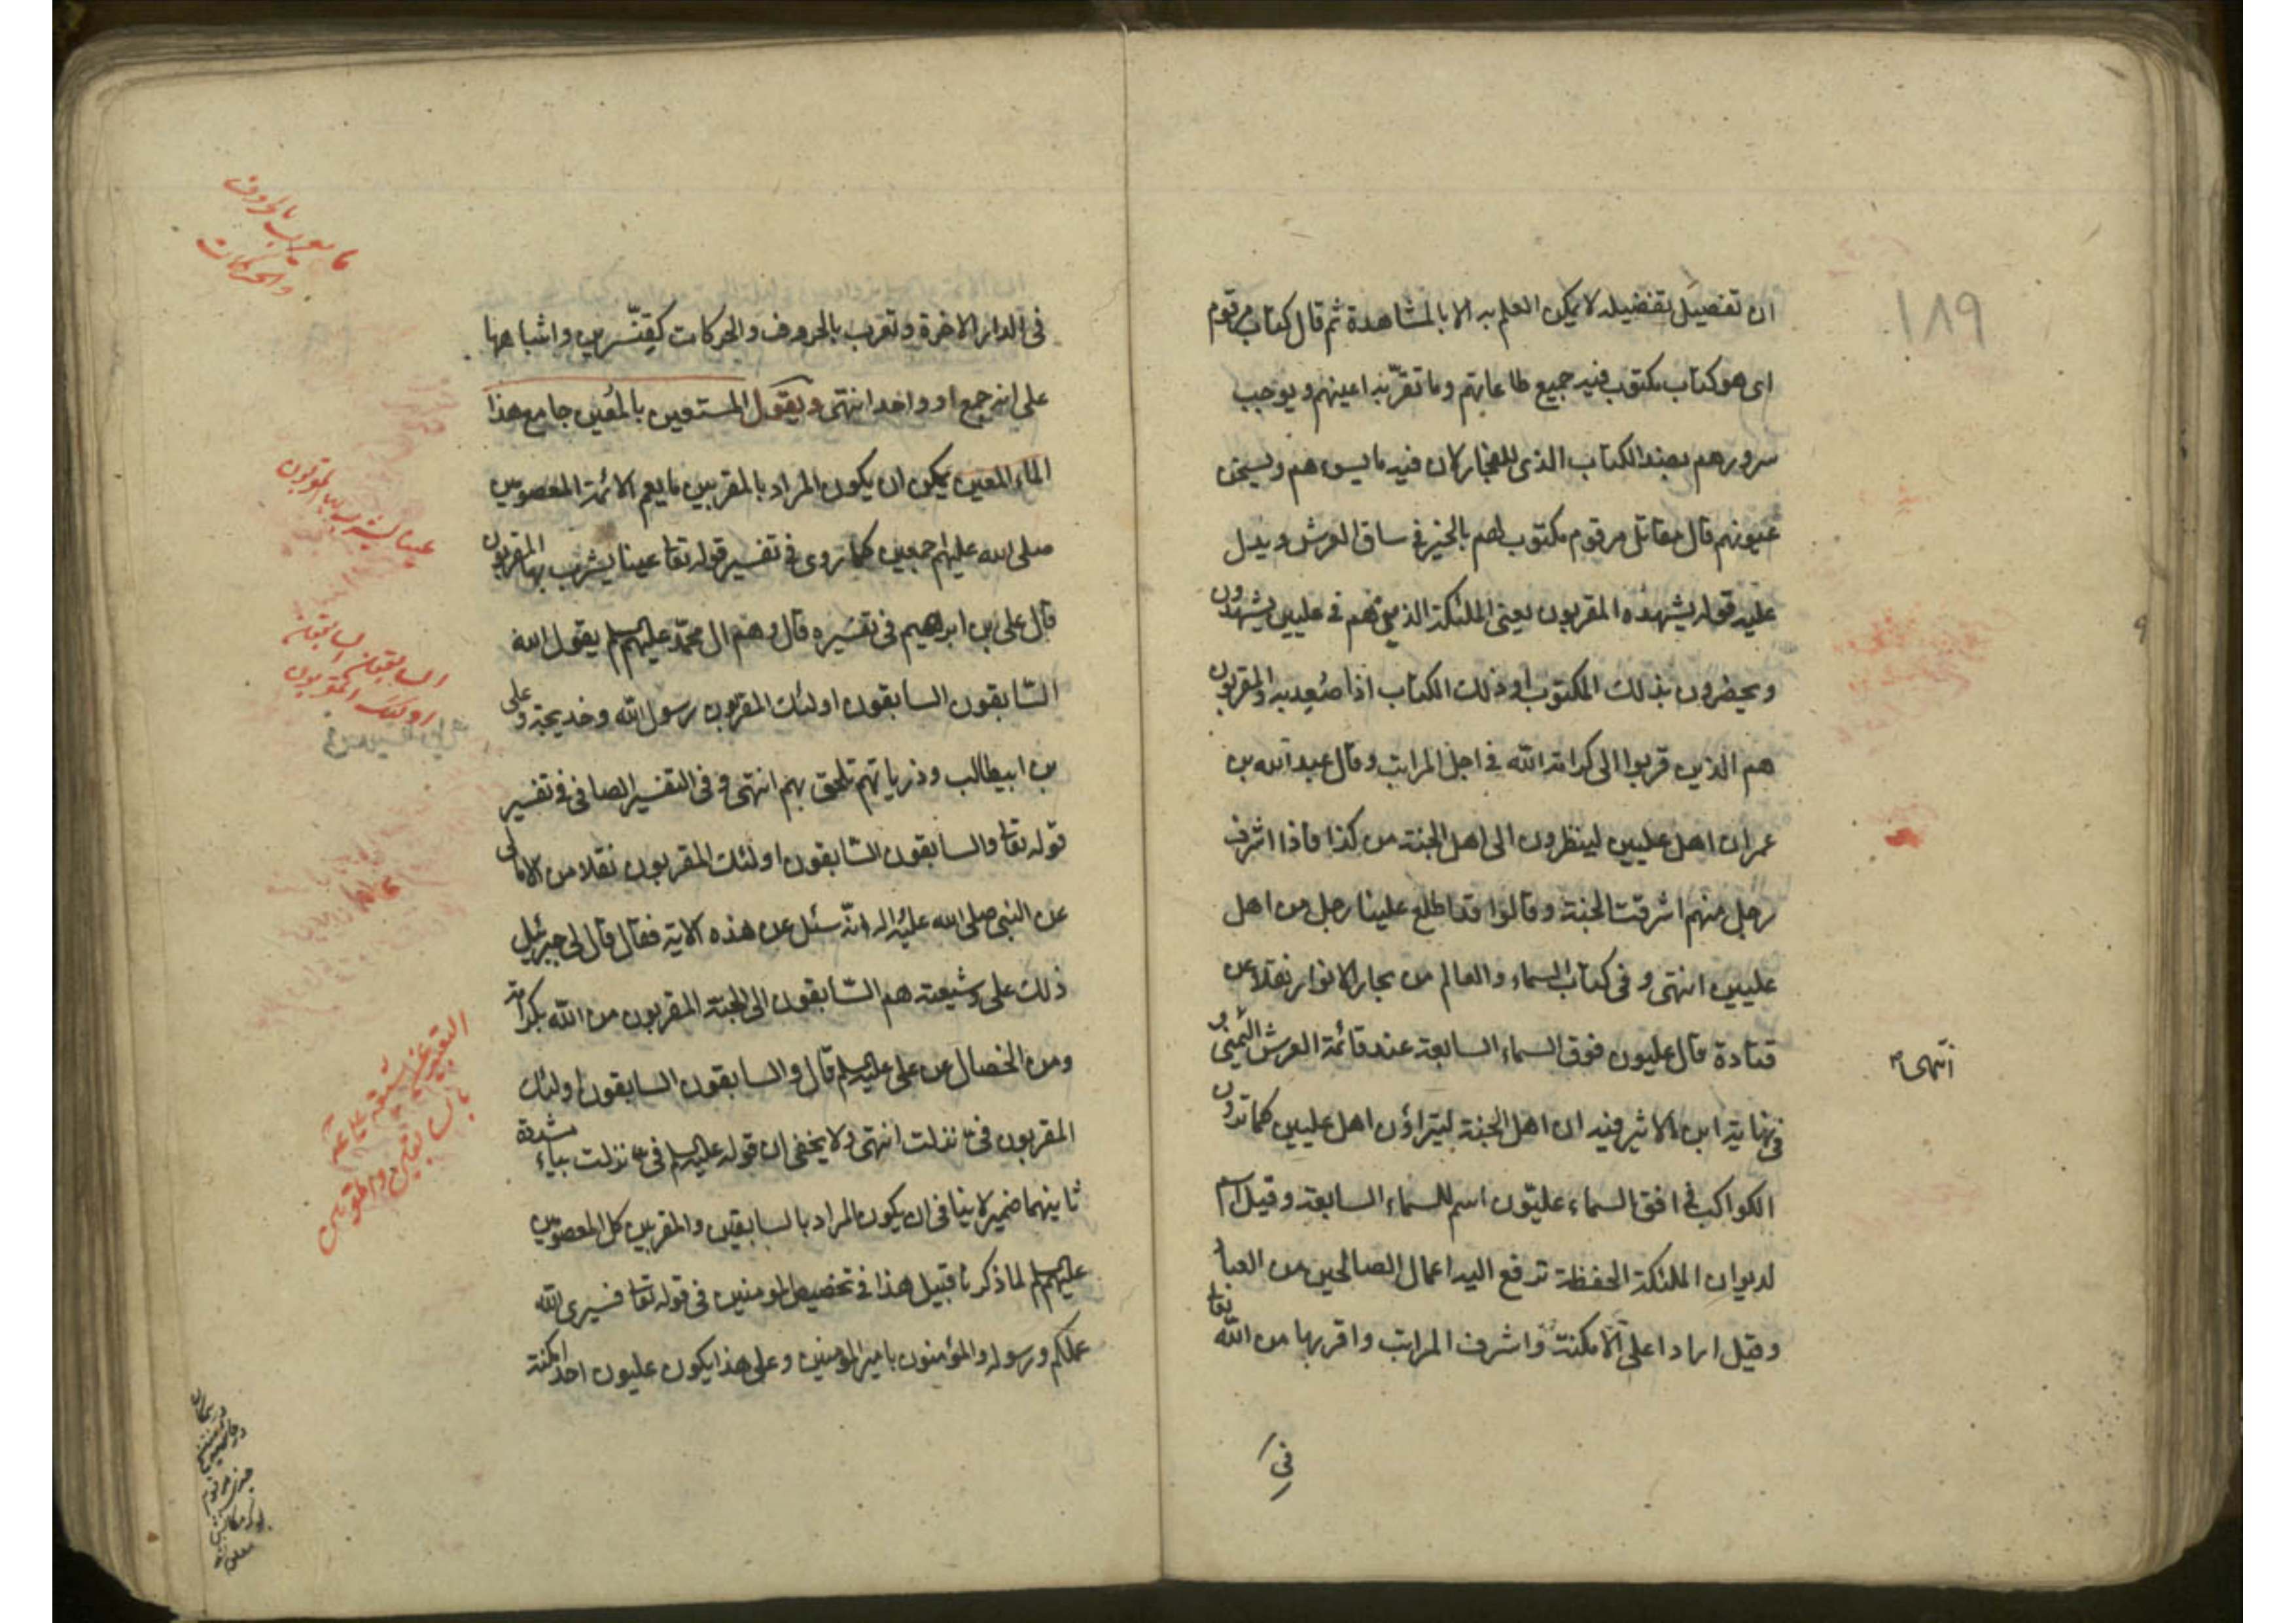 ١٨٩
ان تفصيل تفضيله لا يمكن العلم به الا بالمشاهدة ثم قال كتاب مرقوم
اى هو كتاب مكتوب فيه جميع طاعاتهم وما تقرّ به اعينهم ويوجب
سرورهم بضد الكتاب الذى للفجار لان فيه ما يسوءهم ويسخن
عيونهم قال مقاتل مرقوم مكتوب لهم بالخير فى ساق العرش ويدل
عليه قوله يشهده المقربون يعنى الملئكة الذين هم فى عليين يشهدون
ويحضرون بذلك المكتوب او ذلك الكتاب اذا صُعِد به والمقربون
هم الذين قربوا الى كرامة الله فى اجل المراتب وقال عبد الله بن
عمر ان اهل عليين لينظرون الى اهل الجنة من كذا فاذا اشرف
رجل منهم اشرقت الجنة وقالوا قد اطلع علينا رجل من اهل
عليين انتهى و فى كتاب السماء والعالم من بحار الانوار نقلا عن
قتادة قال عليون فوق السماء السابعة عند قائمة العرش اليمنى و
انتهى
فى نهاية ابن الاثير فيه ان اهل الجنة ليتراؤن اهل عليين كما ترون
الكواكب فى افق السماء عليّون اسم للسماء السابعة وقيل اسم
لديوان الملئكة الحفظة ترفع اليه اعمال الصالحين من العباد
وقيل اراد اعلى الامكنة واشرف المراتب واقربها من الله تعا
فى
فى الدار الاخرة وتعرب بالحروف والحركات كقِنّسرين واشباهها
على انه جمع او واحد انتهى ويقول المستعين بالمُعين جامع هذا
الماء المعين يمكن ان يكون المراد بالمقربين ما يعم الائمة المعصومين
صلى الله عليهم اجمعين كما روى فى تفسير قوله تعا عينا يشرب بها المقربون
قال على بن ابرهيم فى تفسيره قال وهم ال محمّد عليهم السلم يقول الله
السّابقون السابقون اولئك المقربون رسول الله وخديجة وعلى
بن ابيطالب وذرياتهم تلحق بهم انتهى و فى التفسير الصافى فى تفسير
قوله تعا والسابقون السّابقون اولئك المقربون نقلا من الامالى
عن النبى صلى الله عليه واله انّه سئل عن هذه الاية فقال قال لى جبرئيل
ذلك على وشيعته هم السّابقون الى الجنة المقربون من الله بكرامته
ومن الخصال عن على عليه السلم قال والسابقون السابقون اولئك
المقربون فىّ نزلت انتهى ولا يخفى ان قوله عليه السلم فىّ نزلت بياء مشددة
ثانيهما ضمير لا ينافى ان يكون المراد بالسابقين والمقربين كل المعصومين
عليهم السلم لما ذكرنا قبيل هذا فى تخصيص المومنين فى قوله تعا فسيرى الله
عملكم ورسوله والمؤمنون بامير المؤمنين وعلى هذا يكون عليون احد امكنة
ما يعرب بالحروف
والحركات
عينا يشرب بها المقربون
السابقون السابقون
اولئك المقربون
التعبير عن شيعة
بالسابقين والمقربين